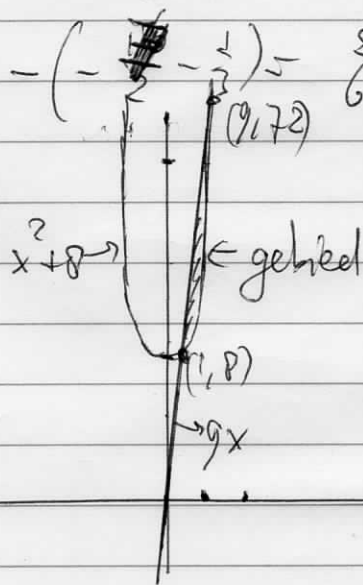 -(-½ - ⅓) =
(9,72)
x²+8 → ← gebied
(1,8)
→ 9x